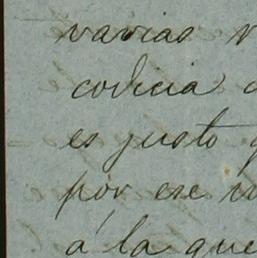 varias
codicia
es justo
por ese
á la que